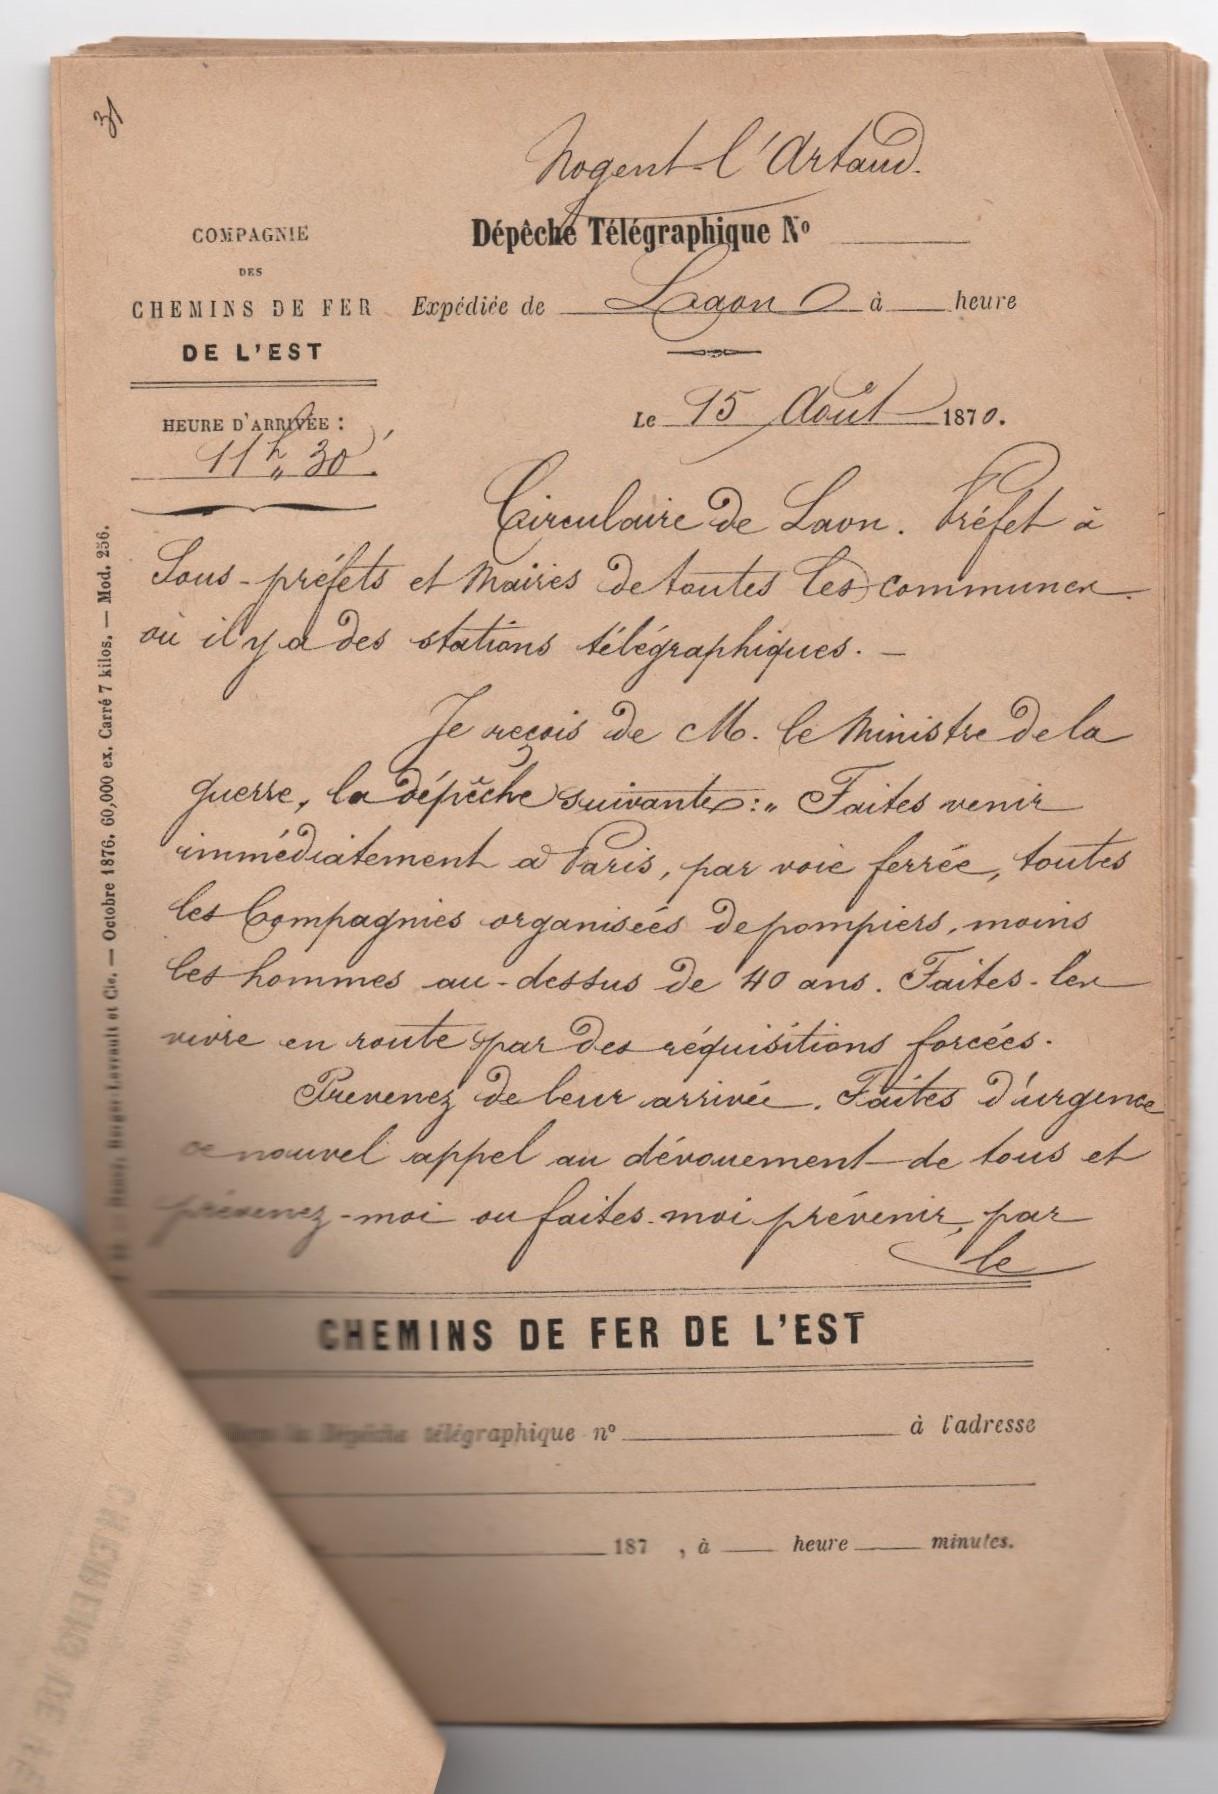 31
Nogent-l'Artaud.
COMPAGNIE
DES
CHEMINS DE FER
DE L'EST
Dépêche Télégraphique Nº
Expédiée de Laon à heure
Le 15 Août 1870.
HEURE D'ARRIVÉE :
11h 30'
Circulaire de Laon. Préfet à
Sous-préfets et Maires de toutes les communes
où il y a des stations télégraphiques. —
Je reçois de M. le Ministre de la
guerre, la dépêche suivante : " Faites venir
immédiatement à Paris, par voie ferrée, toutes
les Compagnies organisées de pompiers, moins
les hommes au-dessus de 40 ans. Faites-les
vivre en route par des réquisitions forcées.
Prevenez de leur arrivée. Faites d'urgence
ce nouvel appel au dévouement de tous et
prévenez-moi ou faites-moi prévenir, par
le
CHEMINS DE FER DE L'EST
Dépêche télégraphique nº à l'adresse
187 , à heure minutes.
Nancy, Berger-Levrault et Cie. — Octobre 1876. 60,000 ex. Carré 7 kilos. — Mod. 256.
CHEMINS DE FE